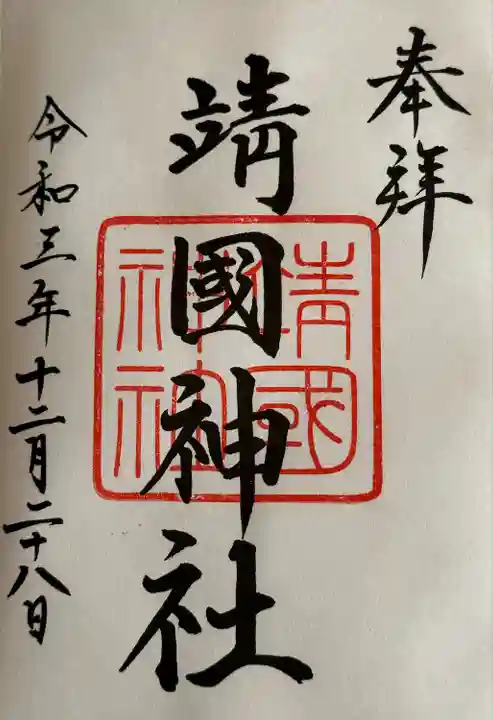 奉拜
靖國神社
靖國
神社
令和三年十二月二十八日